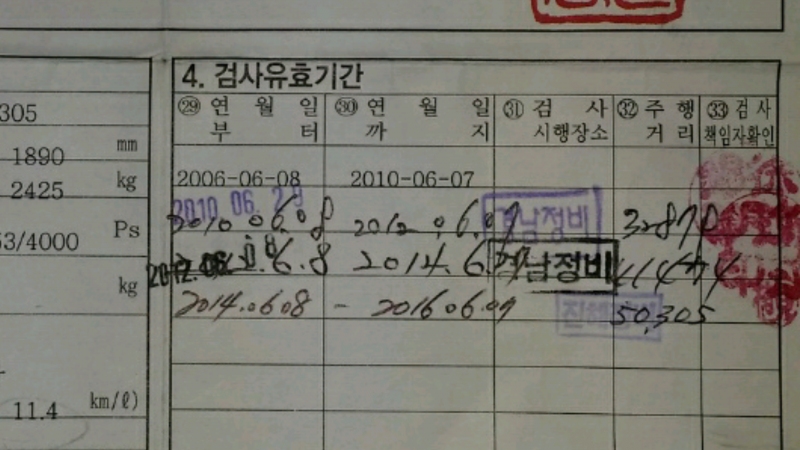 305
1890 mm
2425 kg
Ps
53/4000
kg
11.4 km/ℓ)
4. 검사유효기간
㉙ 연 월 일 부 터
㉚ 연 월 일 까 지
㉛ 검 사 시행장소
㉜ 주 행 거 리
㉝ 검 사 책임자확인
2006-06-08 2010-06-07
2010 06. 29
2010.06.08 2012.06.07 경남정비 32870
6.8 2014.6.07 경남정비
2014.06.08 - 2016.06.07 50,305